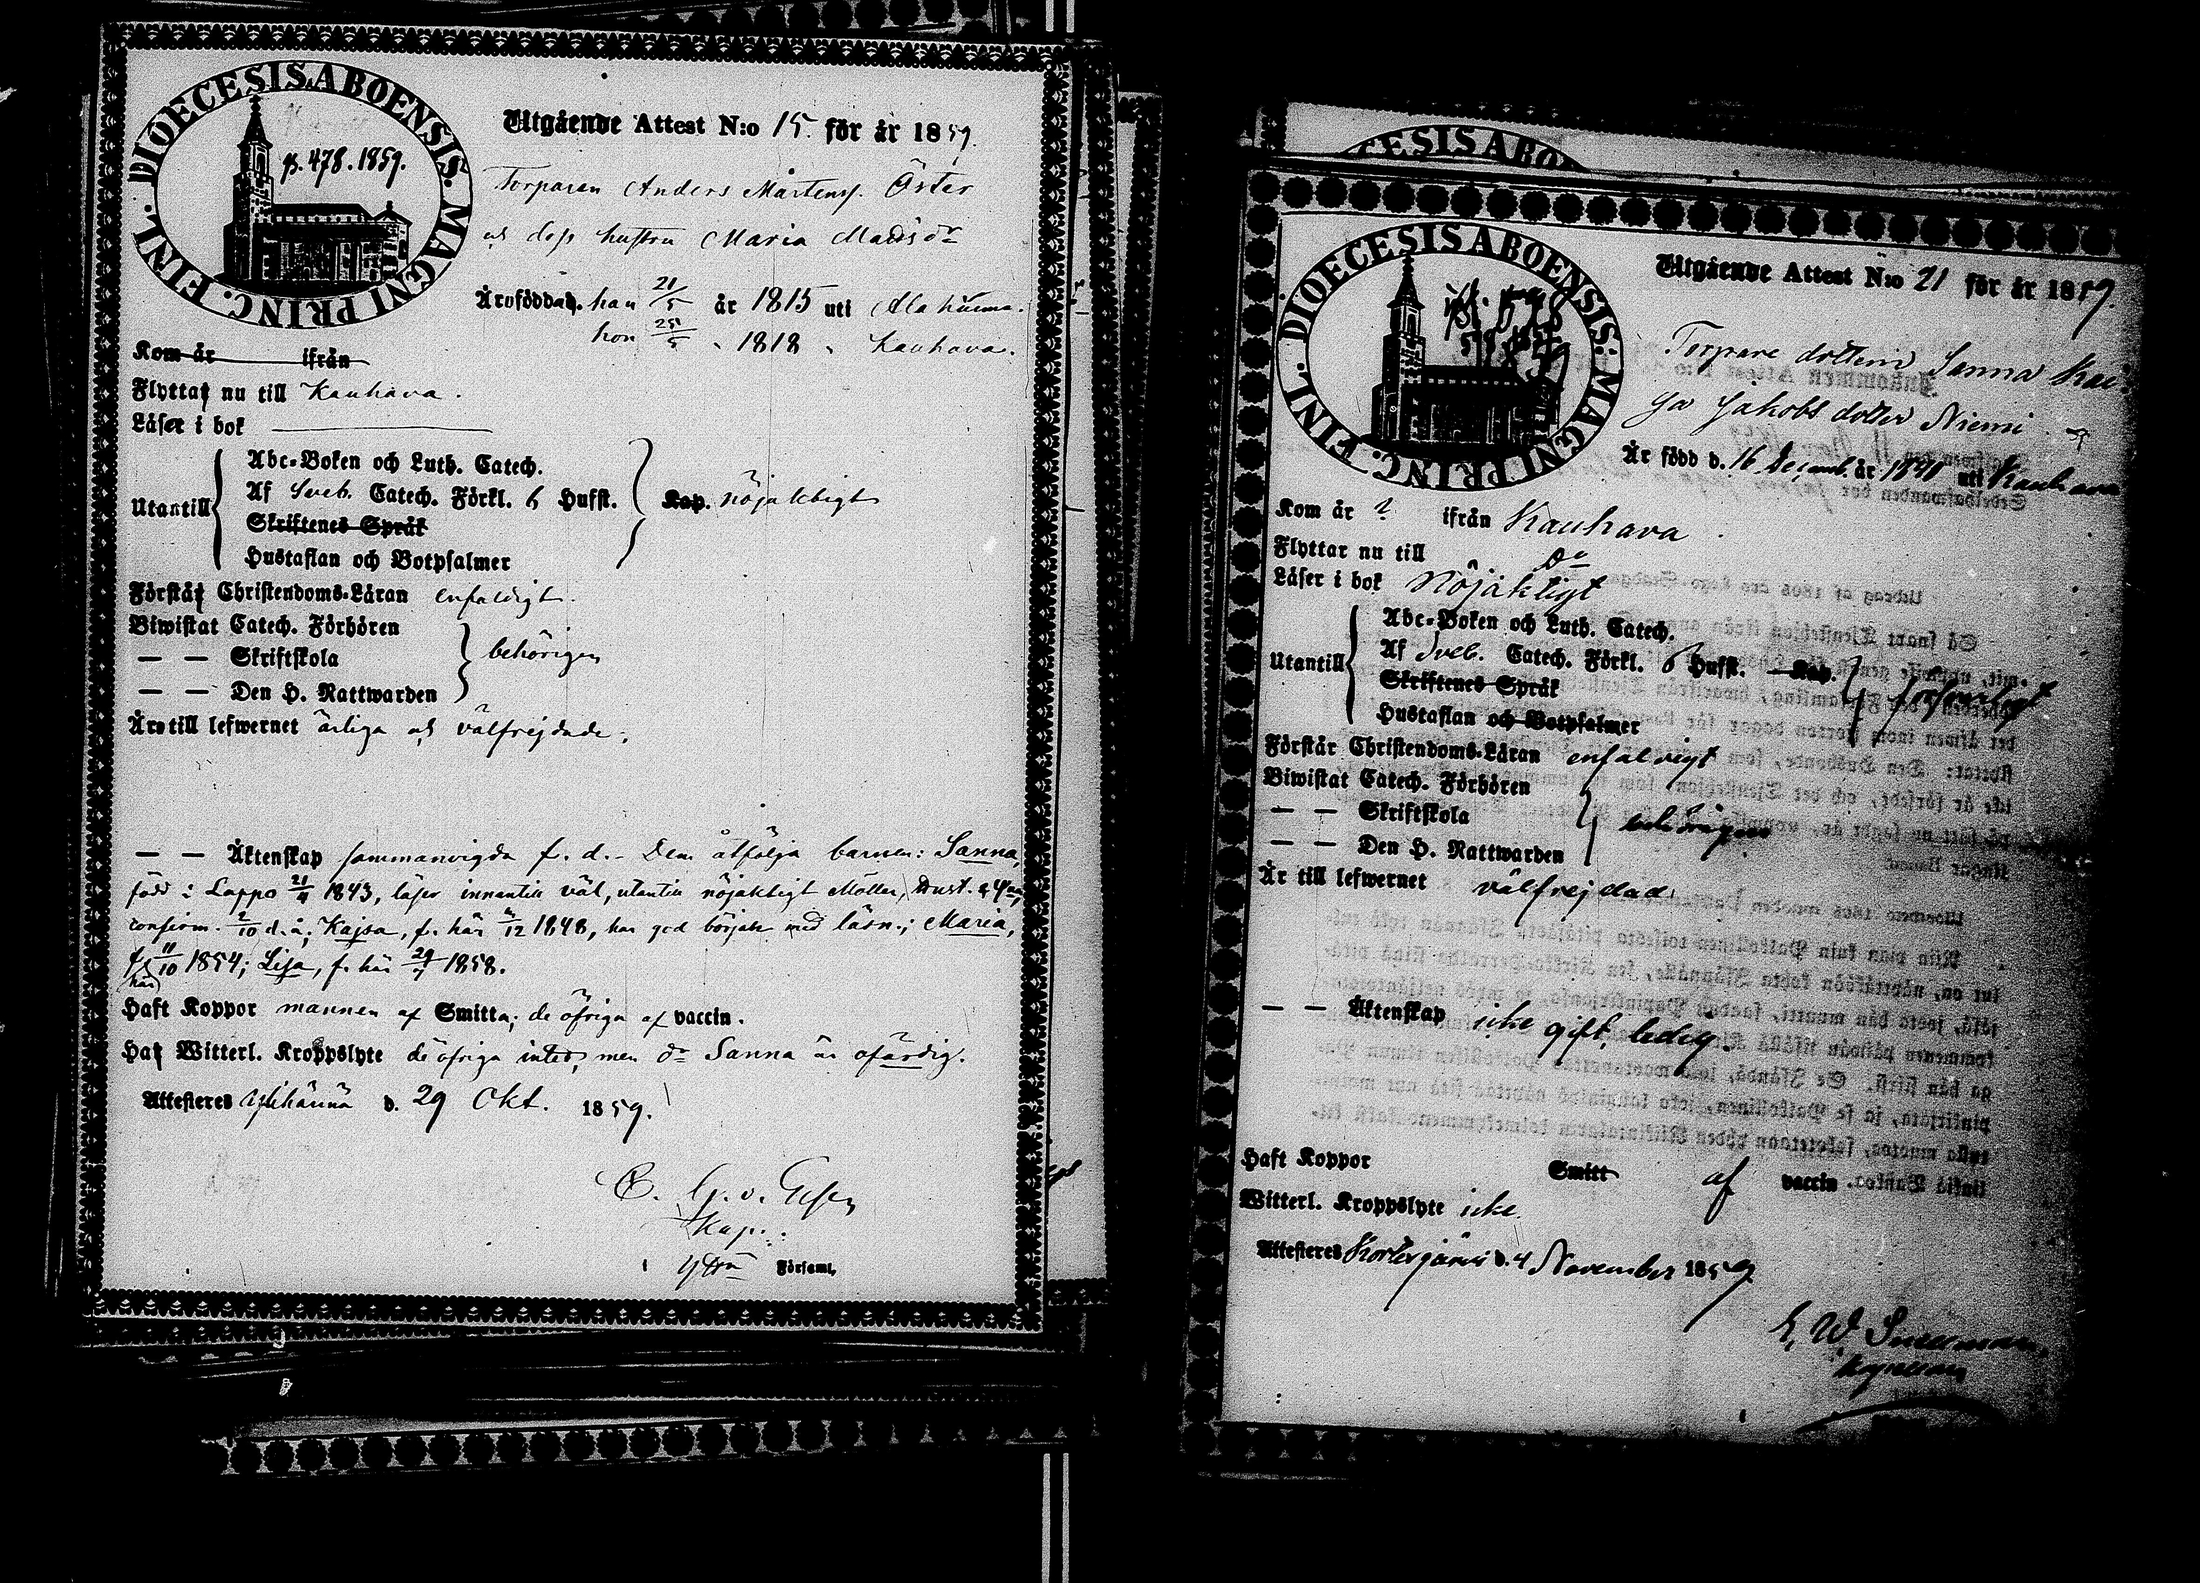 DIOECESIS ABOENSIS. MAGNI PRINC. FINL.
p. 478. 1859.
Utgående Attest N:o 15. för år 1859.
Torparen Anders Mårtenss. Öster
och dess hustru Maria Matsdr
Äro födda. han 21/5 år 1815 uti Alahärmä.
hon 25/5 " 1818 " Kauhava.
Kom år ifrån
Flytta nu till Kauhava.
Läser i bok
Abc-Boken och Luth. Catech.
Utantill Af Sveb. Catech. Förkl. 6 Hufst. Kap. nöjaktigt
Skriftenes Språk
Hustaflan och Botpsalmer
Förstå Christendoms-Läran enfaldigt.
Biwistat Catech. Förhören
— — Skriftskola behörigen
— — Den H. Nattwarden
Äro till lefwernet ärliga och välfrejdade.
— — Äktenskap sammanvigda f. d. - Dem åtfölja barnen: Sanna,
född i Lappo 21/4 1843, läser innantill väl, utantill nöjaktigt
confirm. 2/10 d.å; Kajsa, f. här /12 1848, har god början med läsn.; Maria,
f. här 11/10 1854; Lisa, f. här 29/7 1858.
Haft Koppor mannen af Smitta; de öfriga af vaccin.
Ha Witterl. Kroppslyte de öfriga intet, men dr Sanna är ofärdig.
Attesteras Ylihärmä d. 29 Okt. 1859.
Kap.
Församl.
DIOECESIS ABOENSIS. MAGNI PRINC. FINL.
Utgående Attest N:o 21 för år 1859.
Torpare dottern Sanna Kai
sa Jakobs dotter Niemi
Är född d. 16 Decemb. år uti Kauhava
Kom år ? ifrån Kauhava
Flyttar nu till Do
Läser i bok Nöjaktigt
Abc-Boken och Luth. Catech.
Utantill Af Sveb. Catech. Förkl. 6 Hufst. Kap.
Skriftenes Språk
Hustaflan och Botpsalmer
Förstår Christendoms-Läran enfaldigt
Biwistat Catech. Förhören
— — Skriftskola behörigen
— — Den H. Nattwarden
Är till lefwernet välfrejdad
— — Äktenskap icke gift, ledig.
Haft Koppor Smitt af vaccin.
Witterl. Kroppslyte icke.
Attesteras Kortesjärvi d. 4 November 1859
E. W. Snellman,
Kapellan